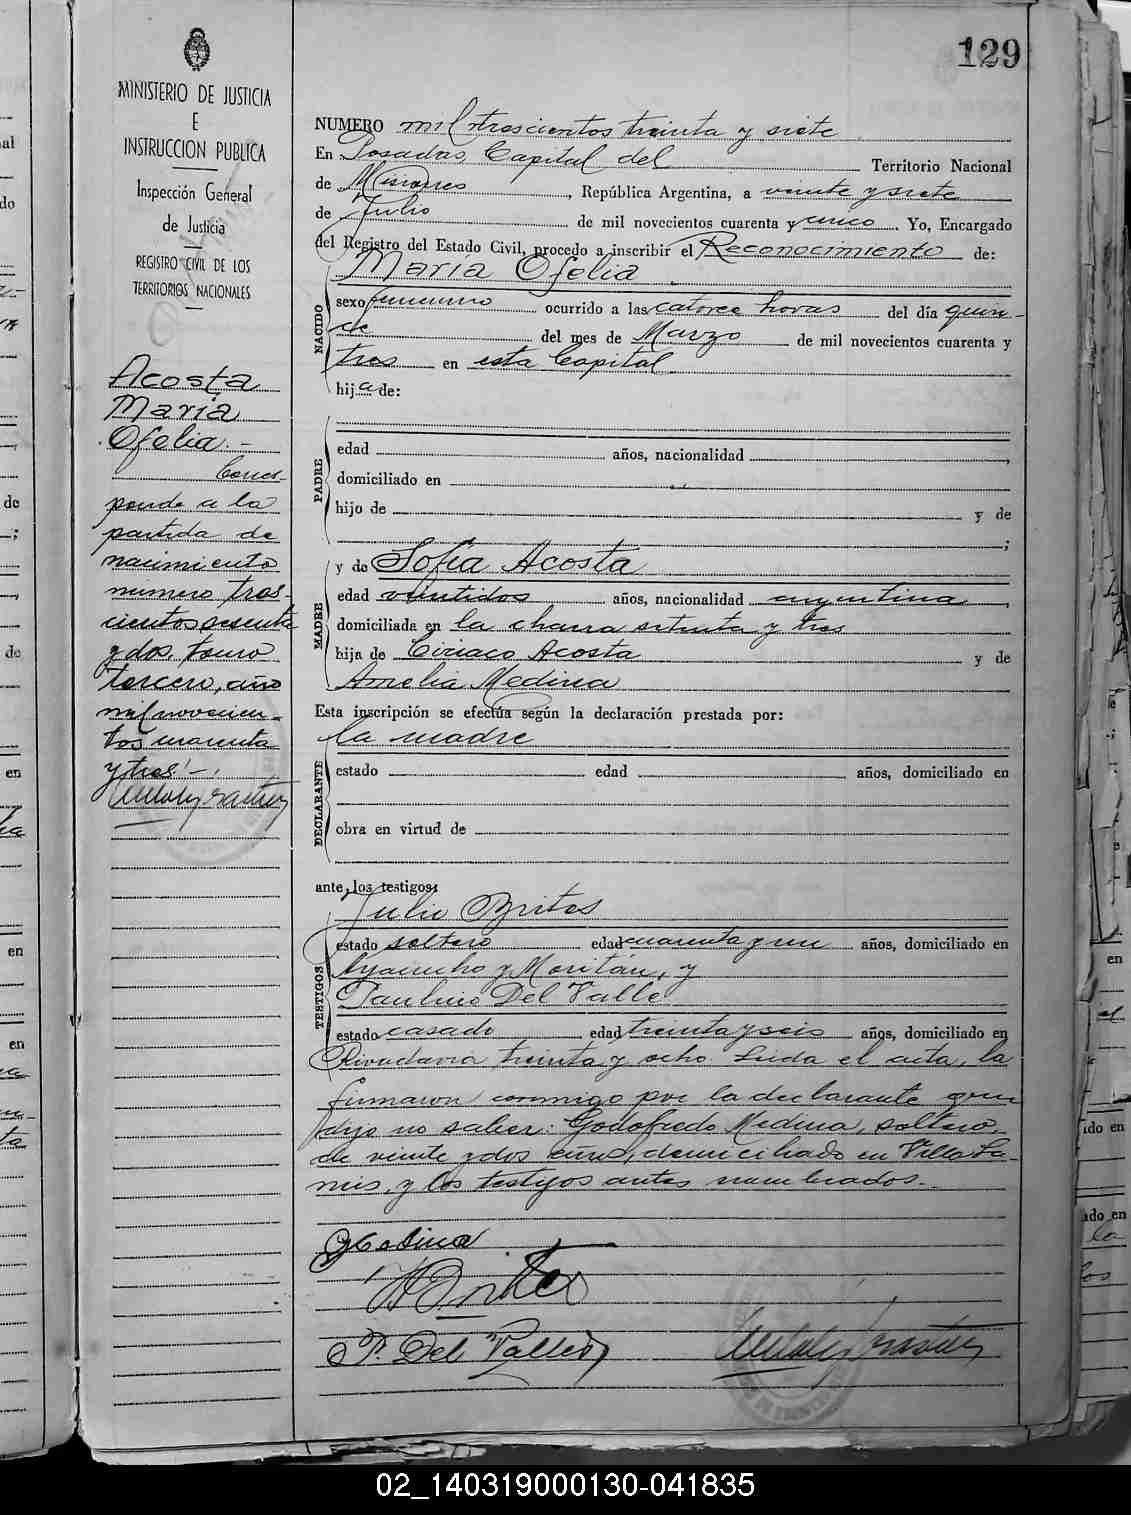 129
MINISTERIO DE JUSTICIA
E
INSTRUCCION PUBLICA
Inspección General
de Justicia
REGISTRO CIVIL DE LOS
TERRITORIOS NACIONALES
Acosta
María
Ofelia.-
Corres-
ponde a la
partida de
nacimiento
numero tres-
cientos sesenta
y dos, tomo
tercero, año
mil novecien-
tos cuarenta
y tres.-
NUMERO mil trescientos treinta y siete
En Posadas, Capital del Territorio Nacional
de Misiones, República Argentina, a veinte y siete
de Julio de mil novecientos cuarenta y cinco. Yo, Encargado
del Registro del Estado Civil, procedo a inscribir el Reconocimiento de:
María Ofelia
NACIDO
sexo femenino ocurrido a las catorce horas del día quin-
ce del mes de Marzo de mil novecientos cuarenta y
tres en esta Capital
hija de:
PADRE
edad años, nacionalidad ,
domiciliado en
hijo de y de
;
MADRE
y de Sofía Acosta
edad veintidos años, nacionalidad argentina,
domiciliada en la chacra setenta y tres
hija de Ciriaco Acosta y de
Amelia Medina
Esta inscripción se efectúa según la declaración prestada por:
la madre
DECLARANTE
estado edad años, domiciliado en
obra en virtud de
ante los testigos:
Julio Brites
TESTIGOS
estado soltero edad cuarenta y un años, domiciliado en
Ayacucho y Moritán, y
Paulino Del Valle
estado casado edad treinta y seis años, domiciliado en
Rivadavia treinta y ocho. Leida el acta, la
firmaron conmigo por la declarante quien
dijo no saber: Godofredo Medina, soltero,
de veinte y dos años, domiciliado en Villa La-
nús, y los testigos antes nombrados.-
GMedina
Brites
P. Del Valle
02_140319000130-041835